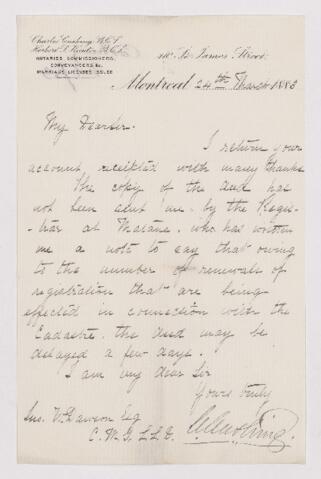 Charles Cushing, B.C.L.
Herbert S. Hunter, B.C.L.
NOTARIES, COMMISSIONERS,
CONVEYANCERS &c.
MARRIAGE LICENSES ISSUED
St. James Street
Montreal 24th March 1883
My Dear Sir.
I return your
account, receipted with many thanks
The copy of the deed has
not been sent me by the Regis-
trar at Matane, who has written
me a note to say that owing
to the number of renewals of
registration that are being
effected in connection with the
Cadastre, the deed may be
delayed a few days.
I am my dear Sir
Yours truly
C Cushing.
Jno. W. Dawson Esq
C. M. G. L.L.D.